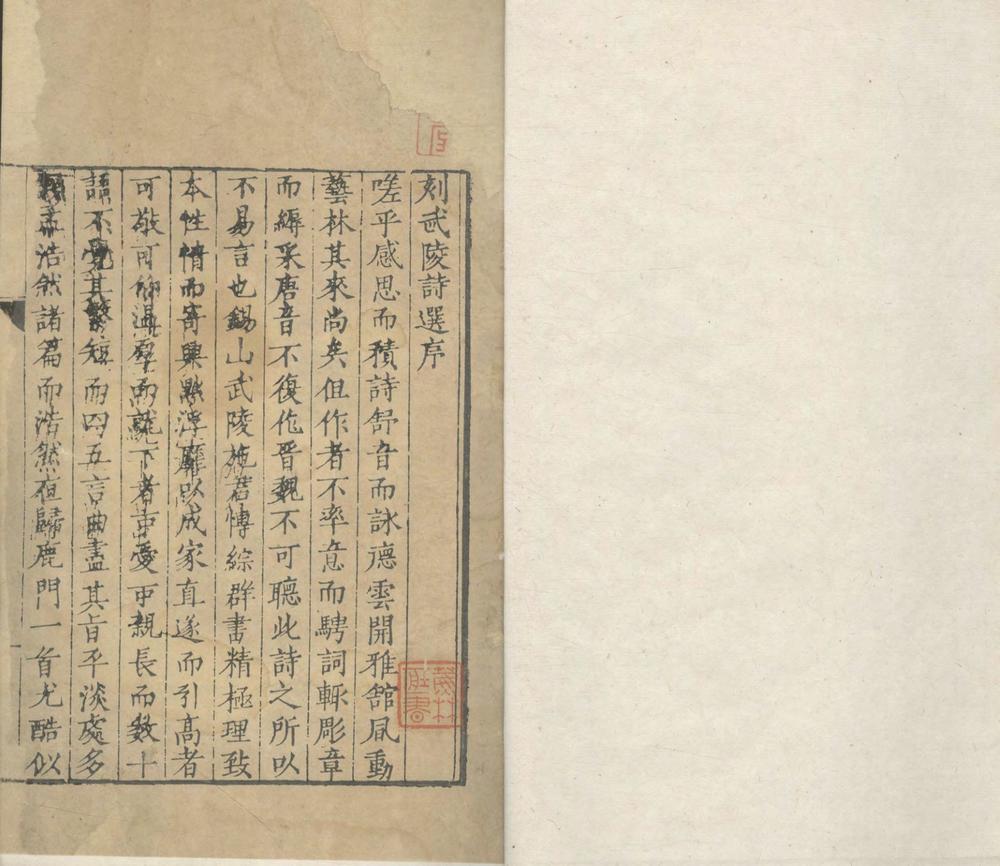 刻武陵詩選序
嗟乎感思而積詩舒音而詠德雲開雅館風動
藝林其來尚矣但作者不率意而騁詞輒彫章
而縟采唐音不復作晉魏不可聽此詩之所以
不易言也錫山武陵施君博綜群書精極理致
本性情而寄興黜浮靡以成家直遂而引高者
可敬可仰溫而就下者可愛可親長而數十
語不覺其繁短而四五言曲盡其旨平淡處多
類孟浩然諸篇而浩然夜歸鹿門一首尤酷似